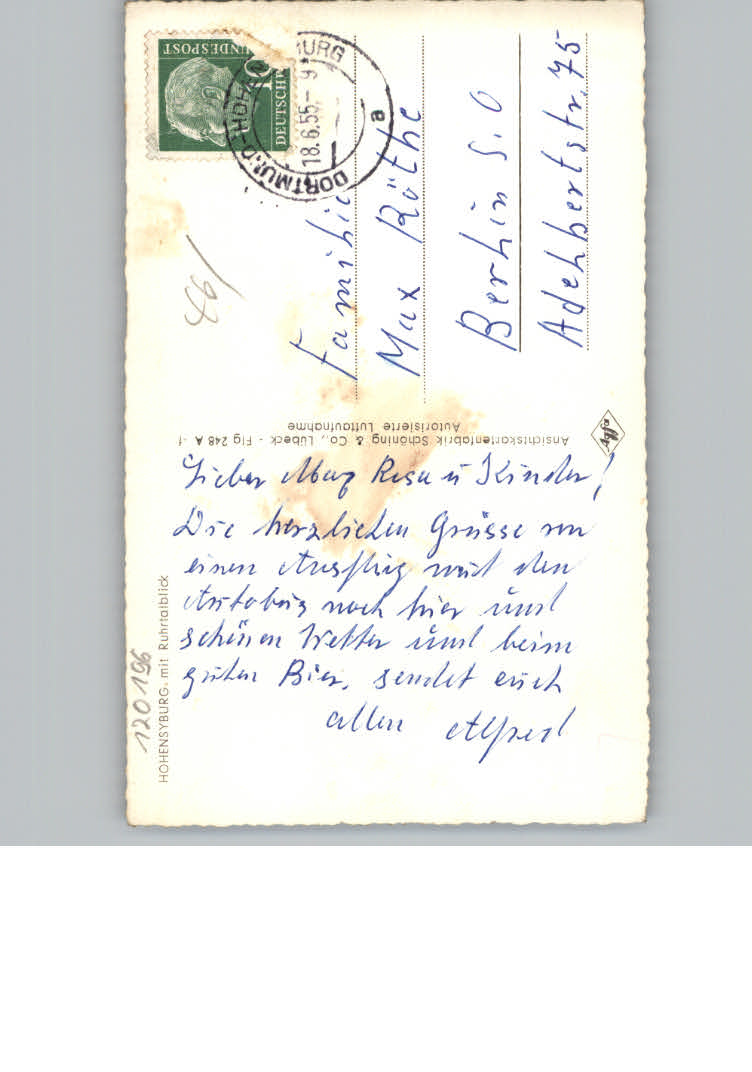 Lieber Max Rosa u Kinder!
Die herzlichen Grüsse von
einen Ausflug mit den
Autobus nach hier und
schönen Wetter und beim
guten Bier, sendet euch
allen Alfred
HOHENSYBURG. mit Ruhrtalblick
120196
Ansichtskartenfabrik Schöning & Co., Lübeck - Flg 248 A -f
Autorisierte Luftaufnahme
Agfa
DEUTSCHE
BUNDESPOST
DORTMUND-HOHENSYBURG
18.6.55.- 9
a
Familie
Max Röthe
Berlin S.O
Adelbertstr. 75